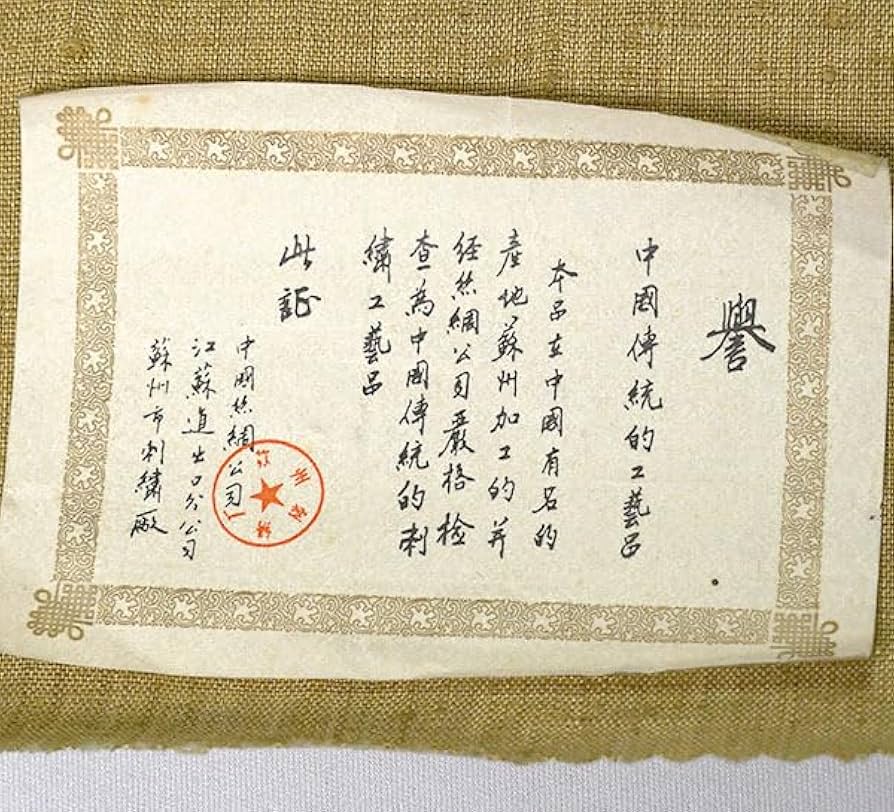 譽
中國傳統的工藝品
本品在中國有名的
產地、蘇州加工的并
经丝綢公司嚴格检
查為中國傳統的刺
繡工藝品
此証
中國丝綢公司
江蘇進出口分公司
蘇州市刺繡廠